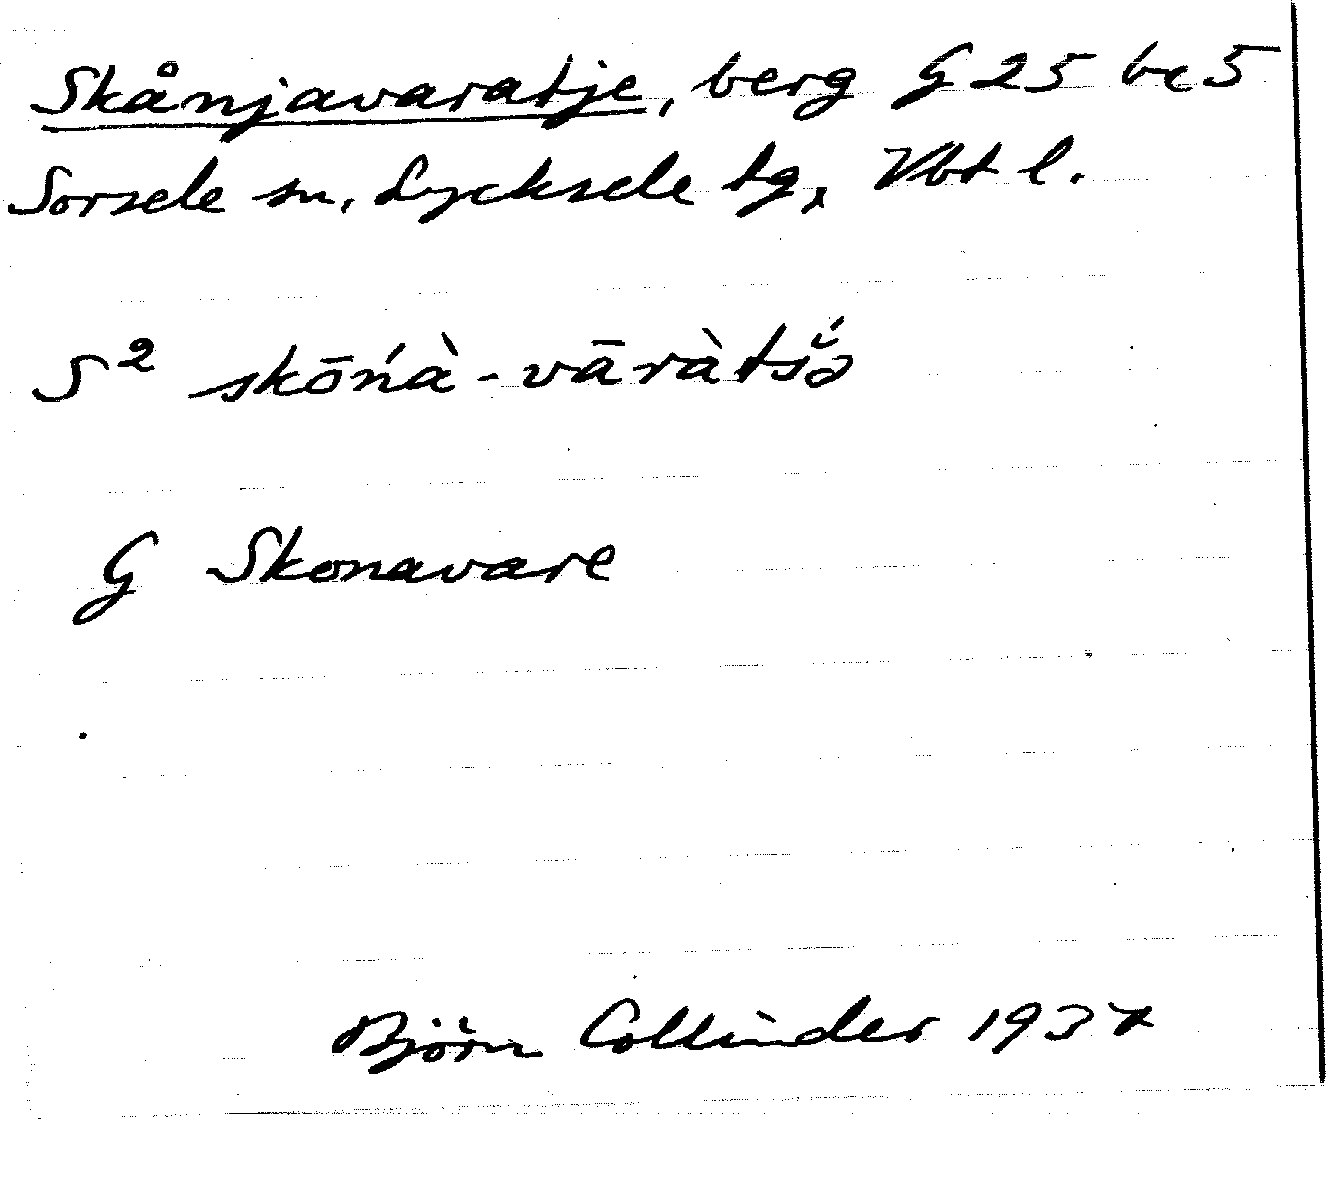 Skånjavaratje, berg G 25 bc 5
Sorsele sn, Lycksele tg, Vbt l.
S² skōńà-vāràtš́ə
G Skonavare
Björn Collinder 1937